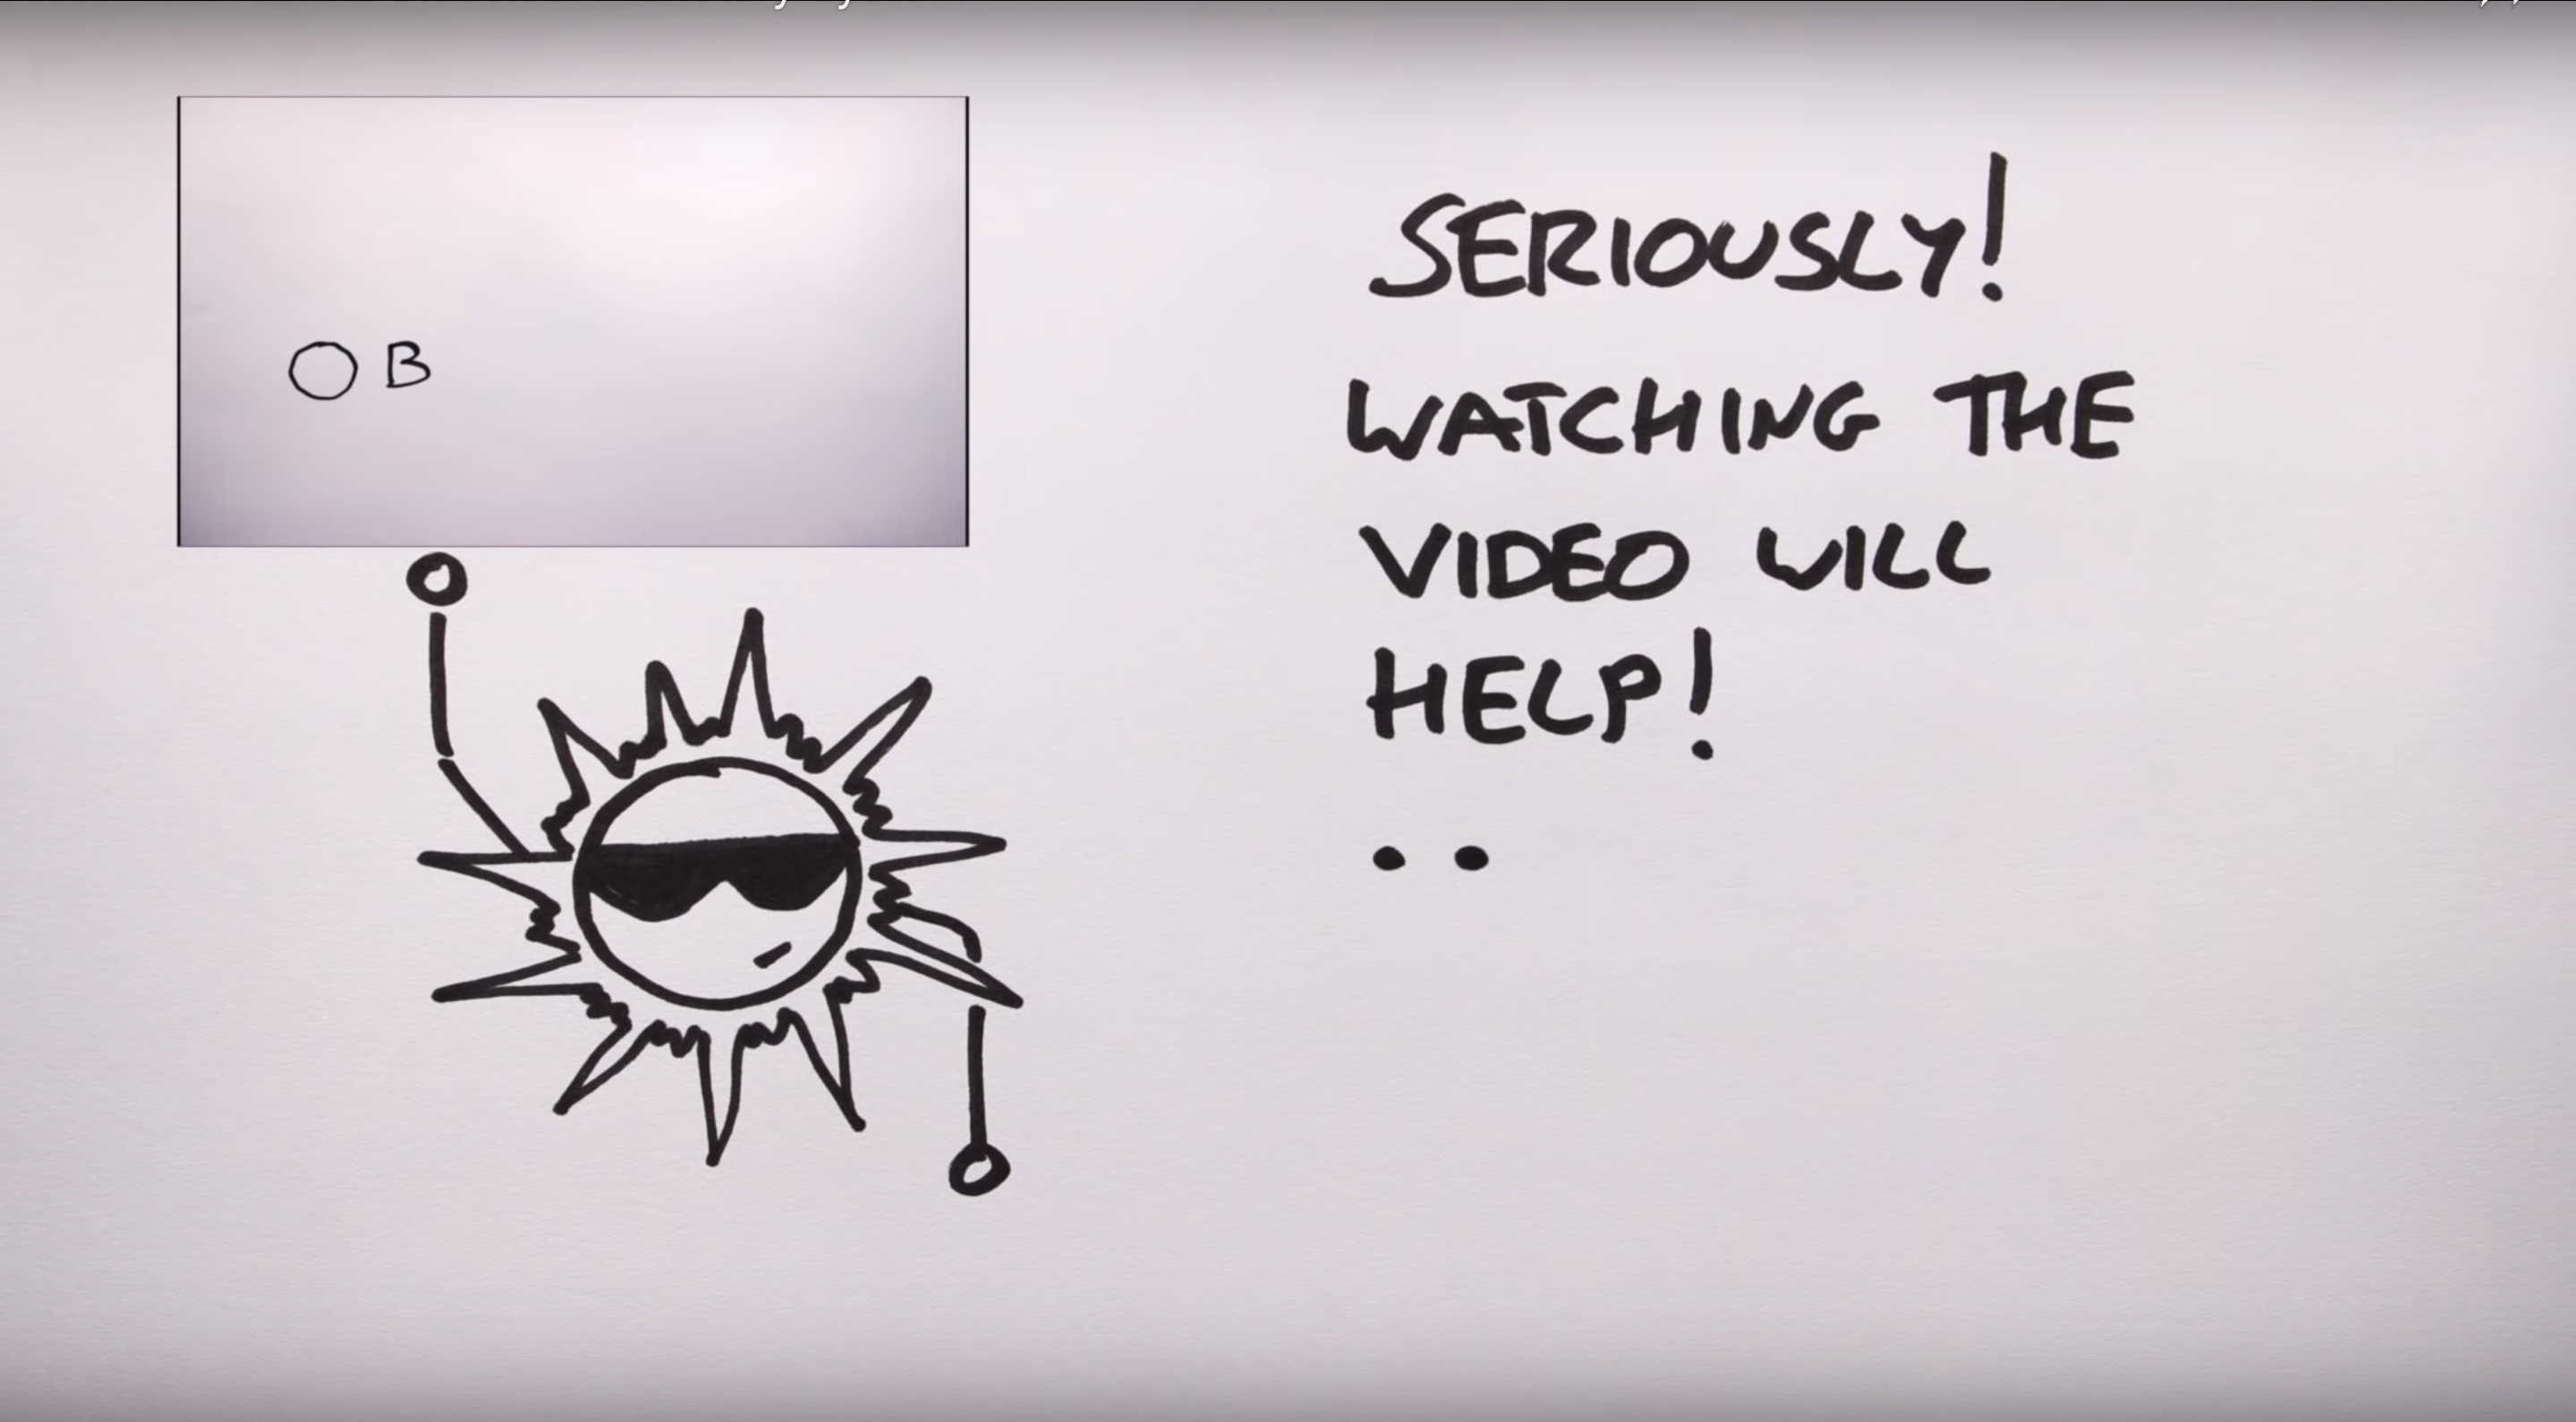 B
SERIOUSLY!
WATCHING THE
VIDEO WILL
HELP!
..